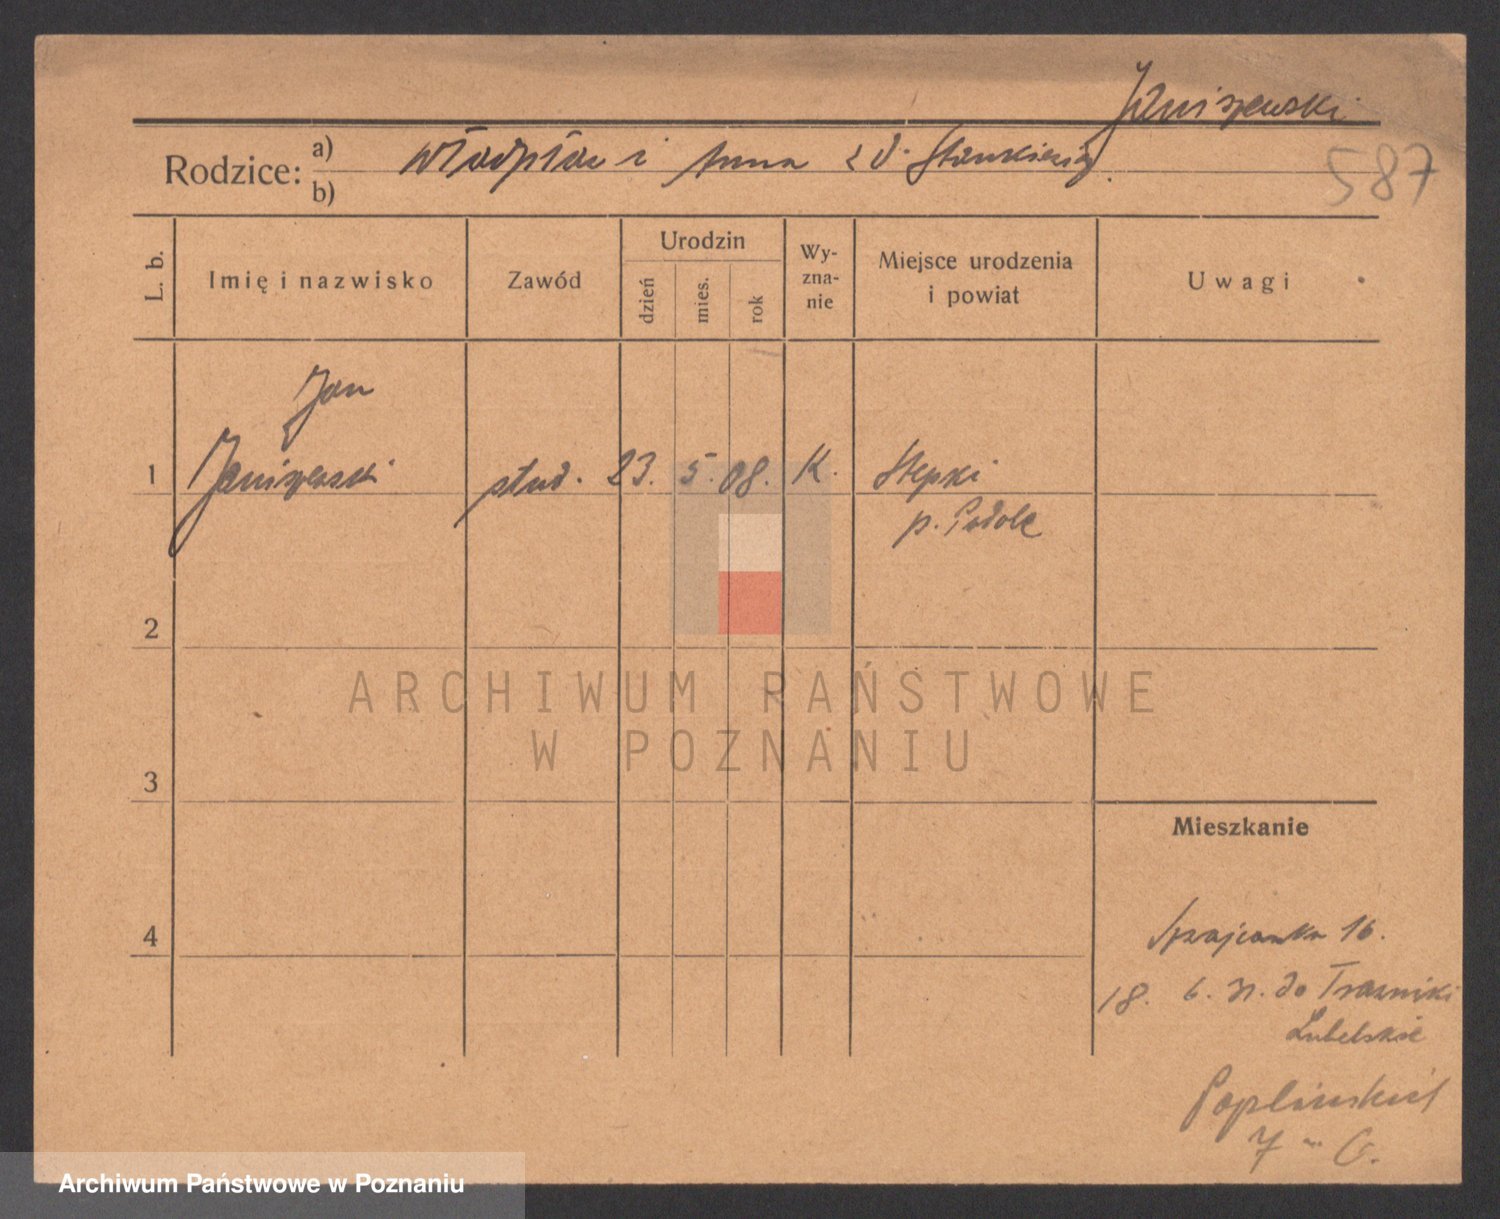 Janiszewski
Rodzice: a) Władysław i Anna z d. Stankiewicz.
b)
587
L. b.
Imię i nazwisko
Zawód
Urodzin
dzień
mies.
rok
Wy-
zna-
nie
Miejsce urodzenia
i powiat
Uwagi
Jan
1 Janiszewski stud. 23. 5. 08. K. Stepki
p. Podole
2
ARCHIWUM PAŃSTWOWE
W POZNANIU
3
Mieszkanie
4
16.
18. 6. 31. do
Lubelskie
Poplińskich
7
Archiwum Państwowe w Poznaniu